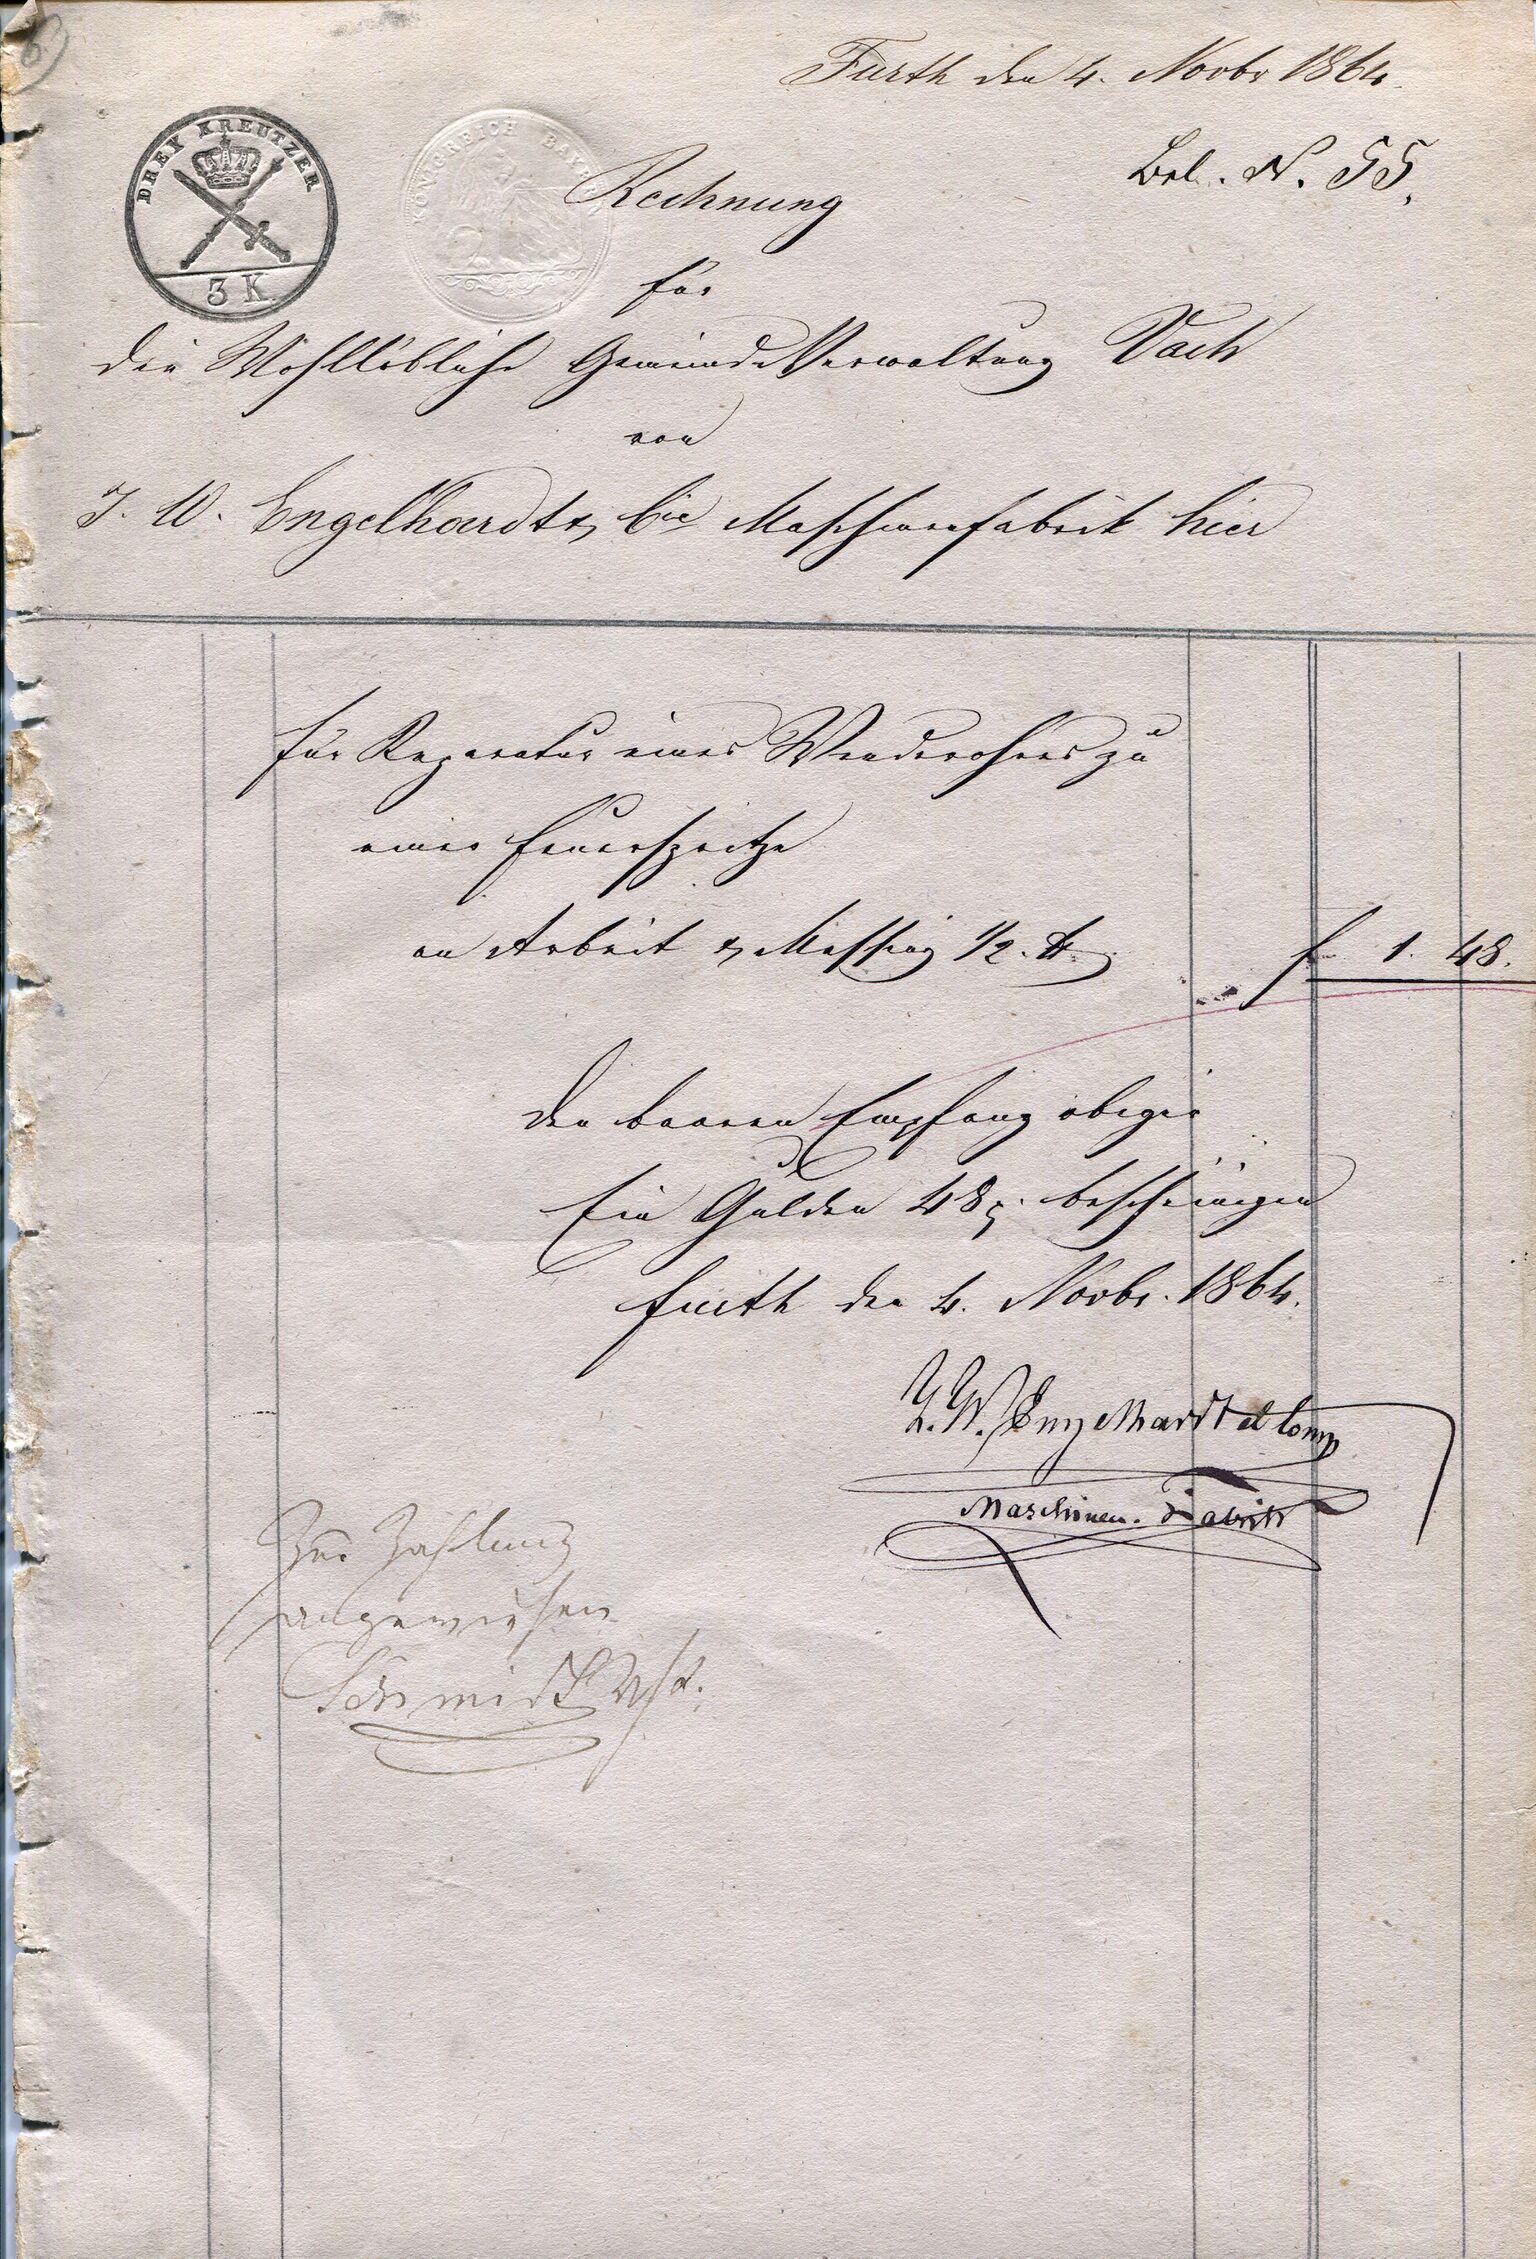 Fürth den 4. Novbr 1864.
Bel. N. 55.
DREY KREUTZER
3 K.
KÖNIGREICH BAYERN
Rechnung
für
die Wohllöbliche Gemeinde Verwaltung Vach
von
J. W. Engelhardt & Cie Maschinenfabrik hier
für Reparatur eines Wenderohres zu
einer Feuerspritze
an Arbeit & Messing 1/2 ℔
f 1. 48.
Den baaren Empfang obiger
Ein Gulden 48 bescheinigen
Fürth den 4. Novbr. 1864.
J. W. Engelhardt et Comp
Maschinen-Fabrik
Zur Zahlung
angewiesen
Schmidt Vst.